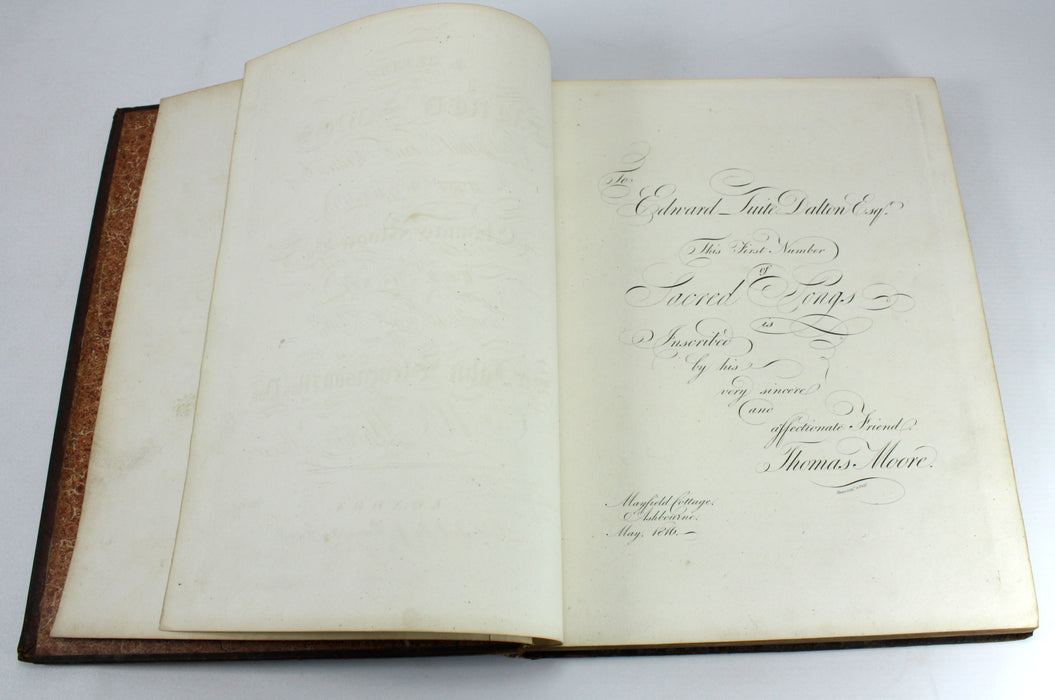 To
Edward Tuite Dalton Esqr.
This First Number
of
Sacred Songs
is
Inscribed
by his
very sincere
and
affectionate Friend
Thomas Moore.
Mayfield Cottage.
Ashbourne.
May. 1816. —